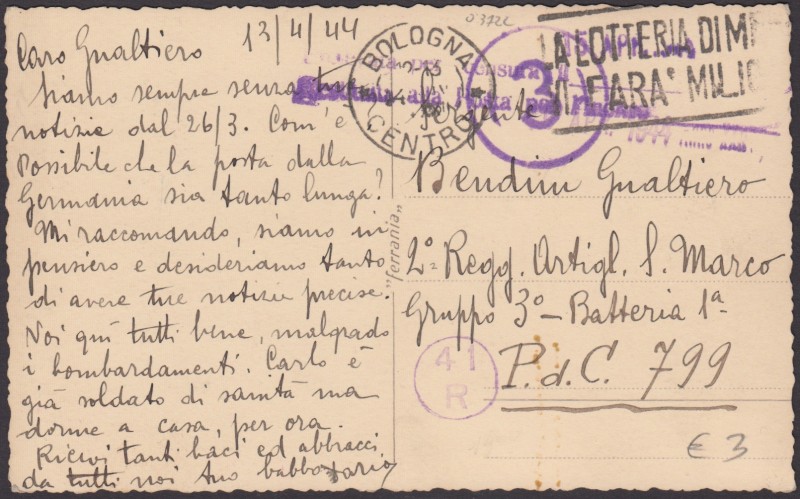 13/4/44
Caro Gualtiero
Siamo sempre senza tue
notizie dal 26/3. Com'è
possibile che la posta dalla
Germania sia tanto lunga?
Mi raccomando, siamo in
pensiero e desideriamo tanto
di avere tue notizie precise.
Noi quì tutti bene, malgrado
i bombardamenti. Carlo è
già soldato di sanità ma
dorme a casa, per ora.
Ricevi tanti baci ed abbracci
da tutti noi tuo babbo
"ferrania"
BOLOGNA
CENTRO
LA LOTTERIA DI
FARA' MILIO
censura
3
1944
Sergente
Bendini Gualtiero
2° Regg. Artigl. S. Marco
Gruppo 3° - Batteria 1ª
P.d.C. 799
41
R
€ 3